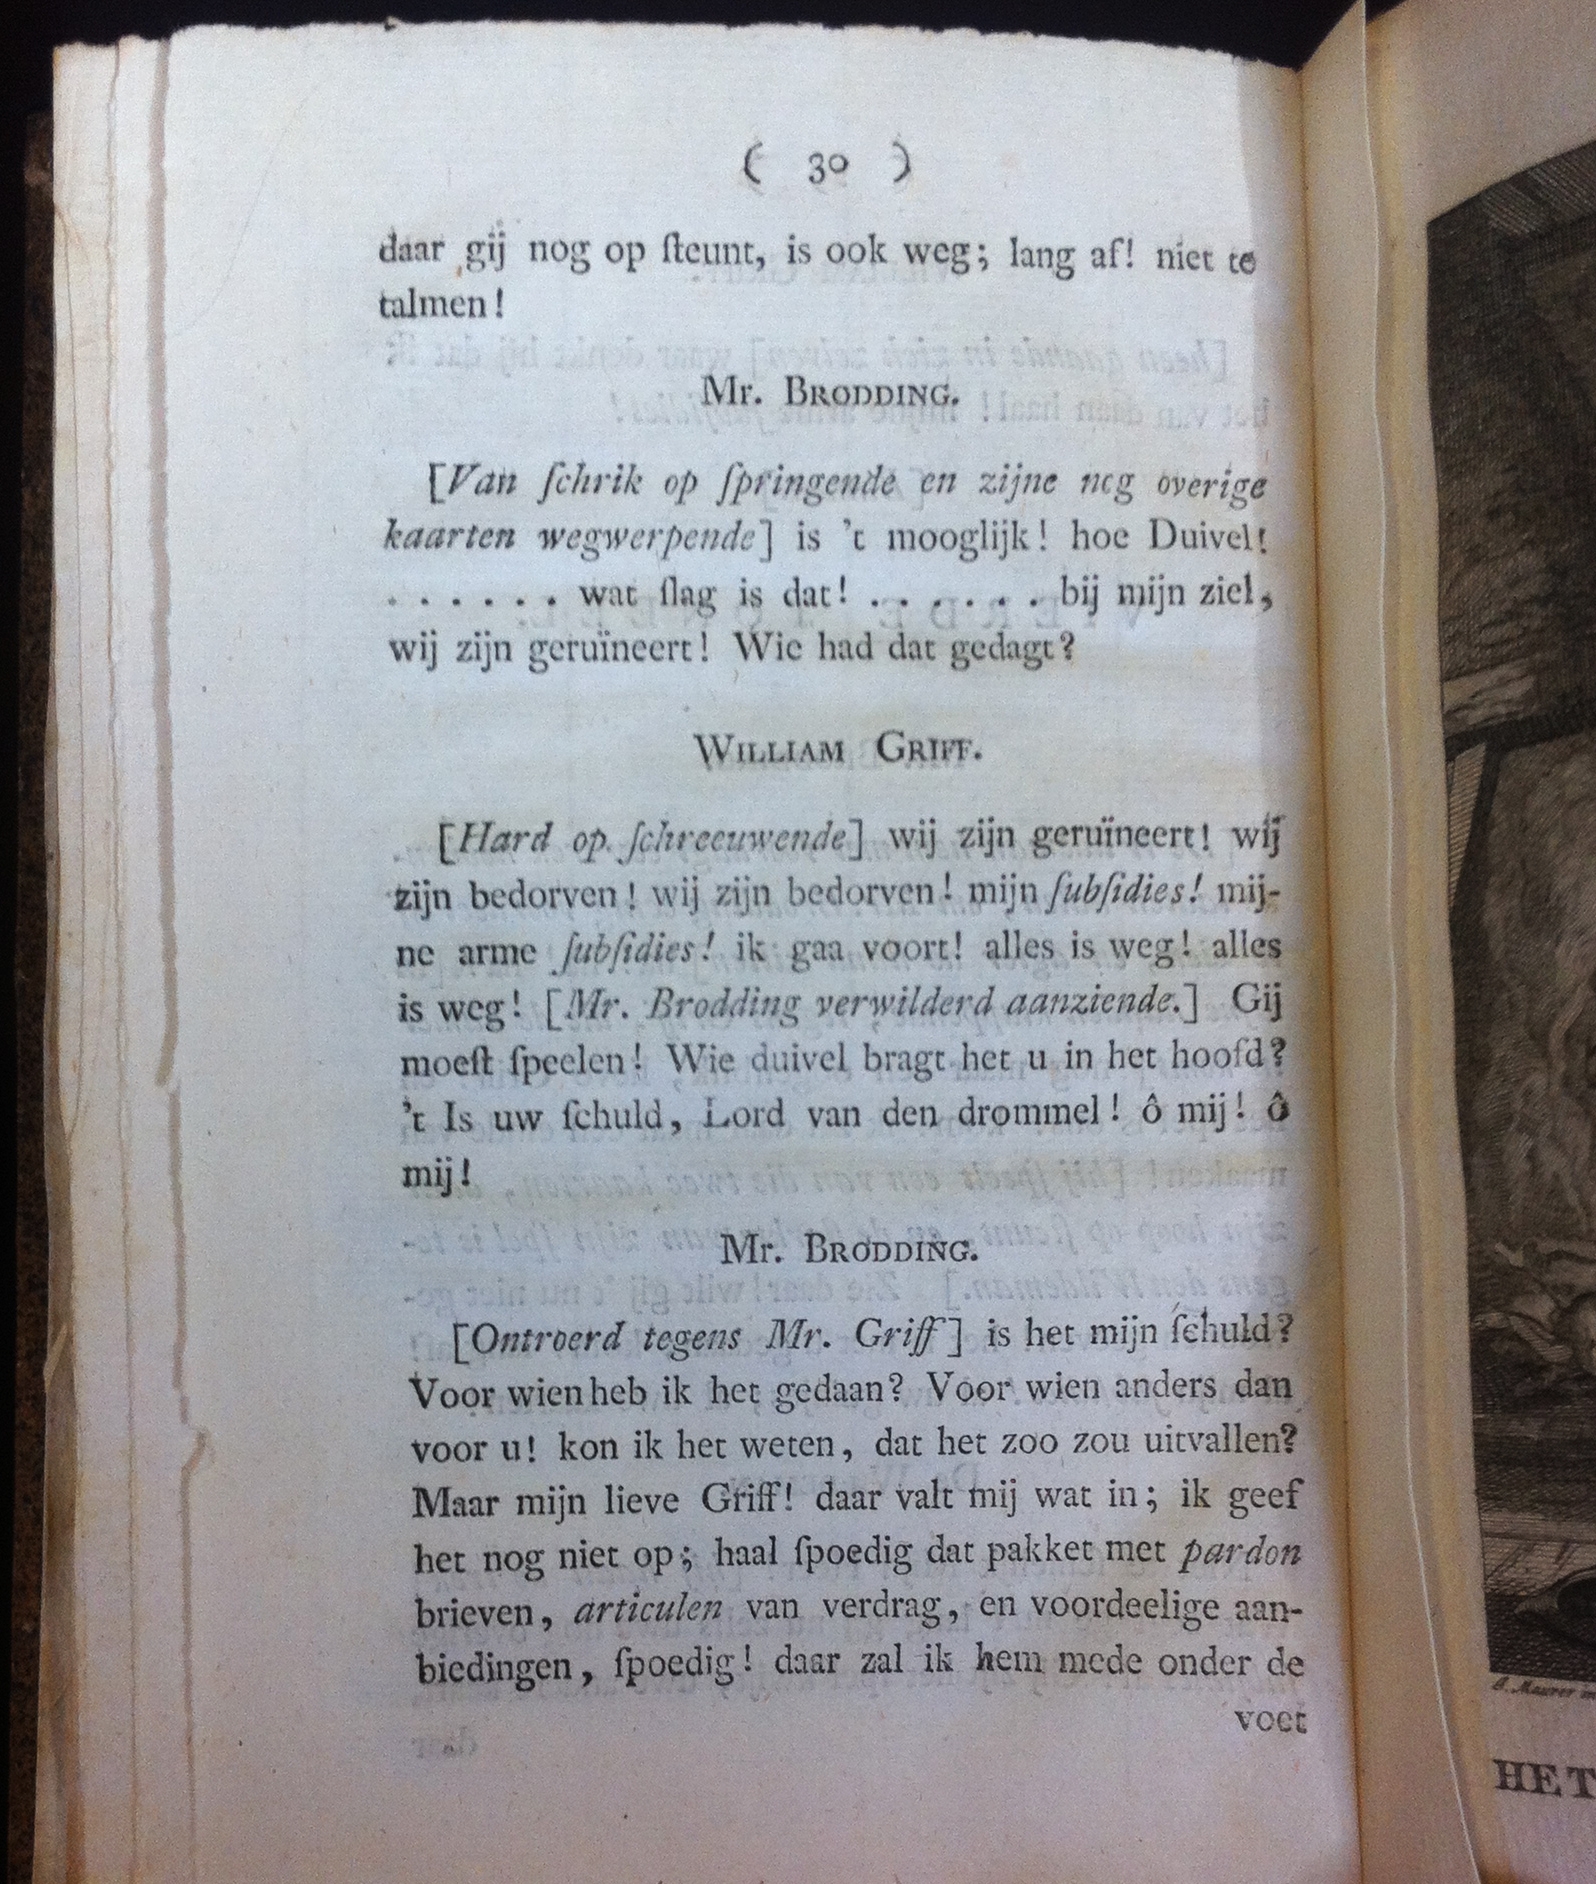 ( 30 )
daar gij nog op ſteunt, is ook weg; lang af! niet te
talmen!
Mr. BRODDING.
[Van ſchrik op ſpringende en zijne nog overige
kaarten wegwerpende] is 't mooglijk! hoe Duivel!
. . . . . . wat ſlag is dat! . . . . . . bij mijn ziel,
wij zijn geruïneert! Wie had dat gedagt?
WILLIAM GRIFF.
[Hard op ſchreeuwende] wij zijn geruïneert! wij
zijn bedorven! wij zijn bedorven! mijn ſubſidies! mij-
ne arme ſubſidies! ik gaa voort! alles is weg! alles
is weg! [Mr. Brodding verwilderd aanziende.] Gij
moeſt ſpeelen! Wie duivel bragt het u in het hoofd?
't Is uw ſchuld, Lord van den drommel! ô mij! ô
mij!
Mr. BRODDING.
[Ontroerd tegens Mr. Griff] is het mijn ſchuld?
Voor wien heb ik het gedaan? Voor wien anders dan
voor u! kon ik het weten, dat het zoo zou uitvallen?
Maar mijn lieve Griff! daar valt mij wat in; ik geef
het nog niet op; haal ſpoedig dat pakket met pardon
brieven, articulen van verdrag, en voordeelige aan-
biedingen, ſpoedig! daar zal ik hem mede onder de
voet
HET